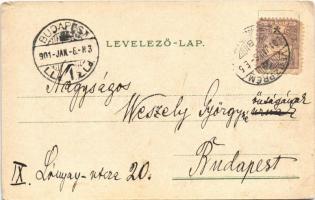 LEVELEZŐ-LAP.
BUDAPEST
901-JAN.-6.-
Nagyságos
Weszely György
úrnak
Budapest
IX. Lónyay-utcza 20.